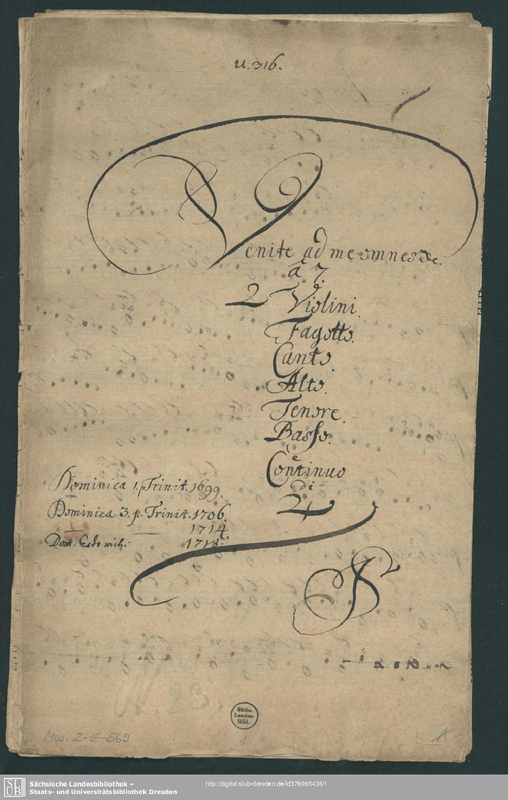 U. 316.
Venite ad me omnes &c.
à 7.
2 Violini.
Fagotto.
Canto.
Alto.
Tenore.
Basso.
è
Continuo
di
Dominica 1. p. Trinit. 1699.
Dominica 3. p. Trinit. 1706.
1714.
Dom. Esto mihi. 1718.
N. 23.
Sächs.
Landes-
Bibl.
Mus. 2-E-569
Sächsische Landesbibliothek –
Staats- und Universitätsbibliothek Dresden
http://digital.slub-dresden.de/id378965436/1